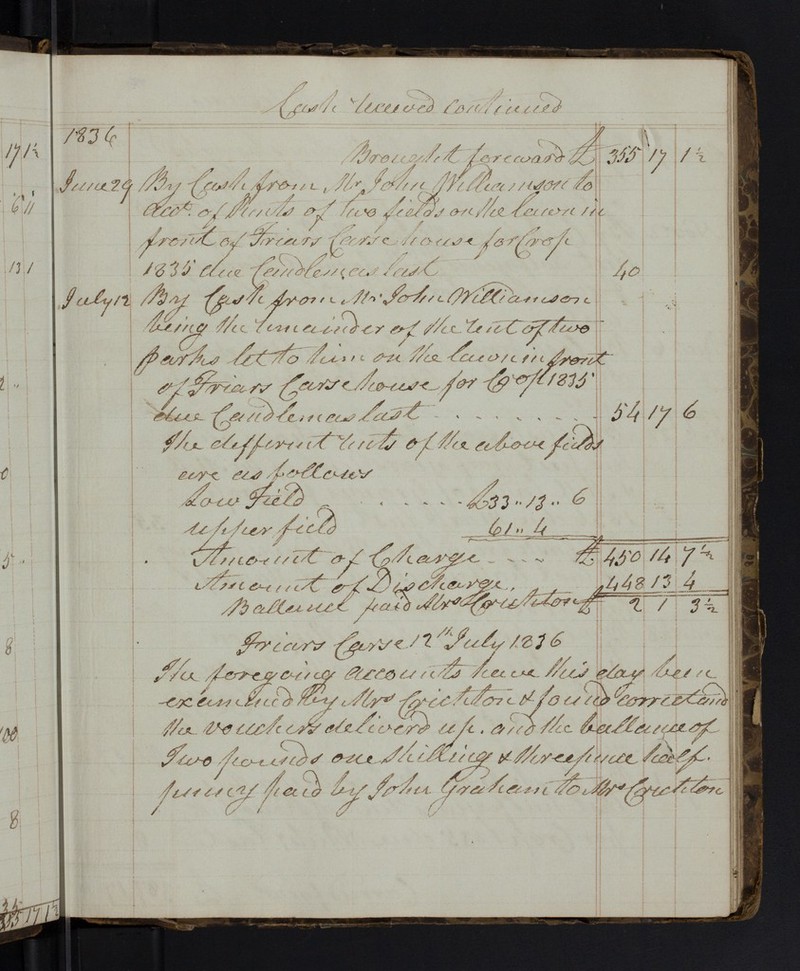 Cash received continued
1836
Brought foreward £ 355 17 1½
June 29 By Cash from Mr John Williamson to
acct. of Rents of two fields on the lawn in
front of Friars Carse house for Crop
1835 due Candlemas last 40
July 12 By Cash from Mr John Williamson
being the remainder of the rent of two
parks let to him on the lawn in front
of Friars Carse house for Crop 1835
due Candlemas last - - - - - - - - 54 17 6
The defferent rents of the above fields
are as follows
Low Field - - - - - - £33 " 13 " 6
upper field 61 " 4
Amount of Charge - - - - £ 450 14 7½
Amount of Discharge. 448 13 4
Ballance paid Mrs Crichton £ 2 1 3½
Friars Carse 12th July 1836
The foregoing accounts have this day been
examined by Mrs Crichton & found correct and
the vouchers deliverd up. and the ballance of
Two pounds one Shilling & threepence half-
penny paid by John Graham to Mrs Crichton
17 1½
6 11
13 1
2 "
0
5 "
8
100
8
355 17 1½